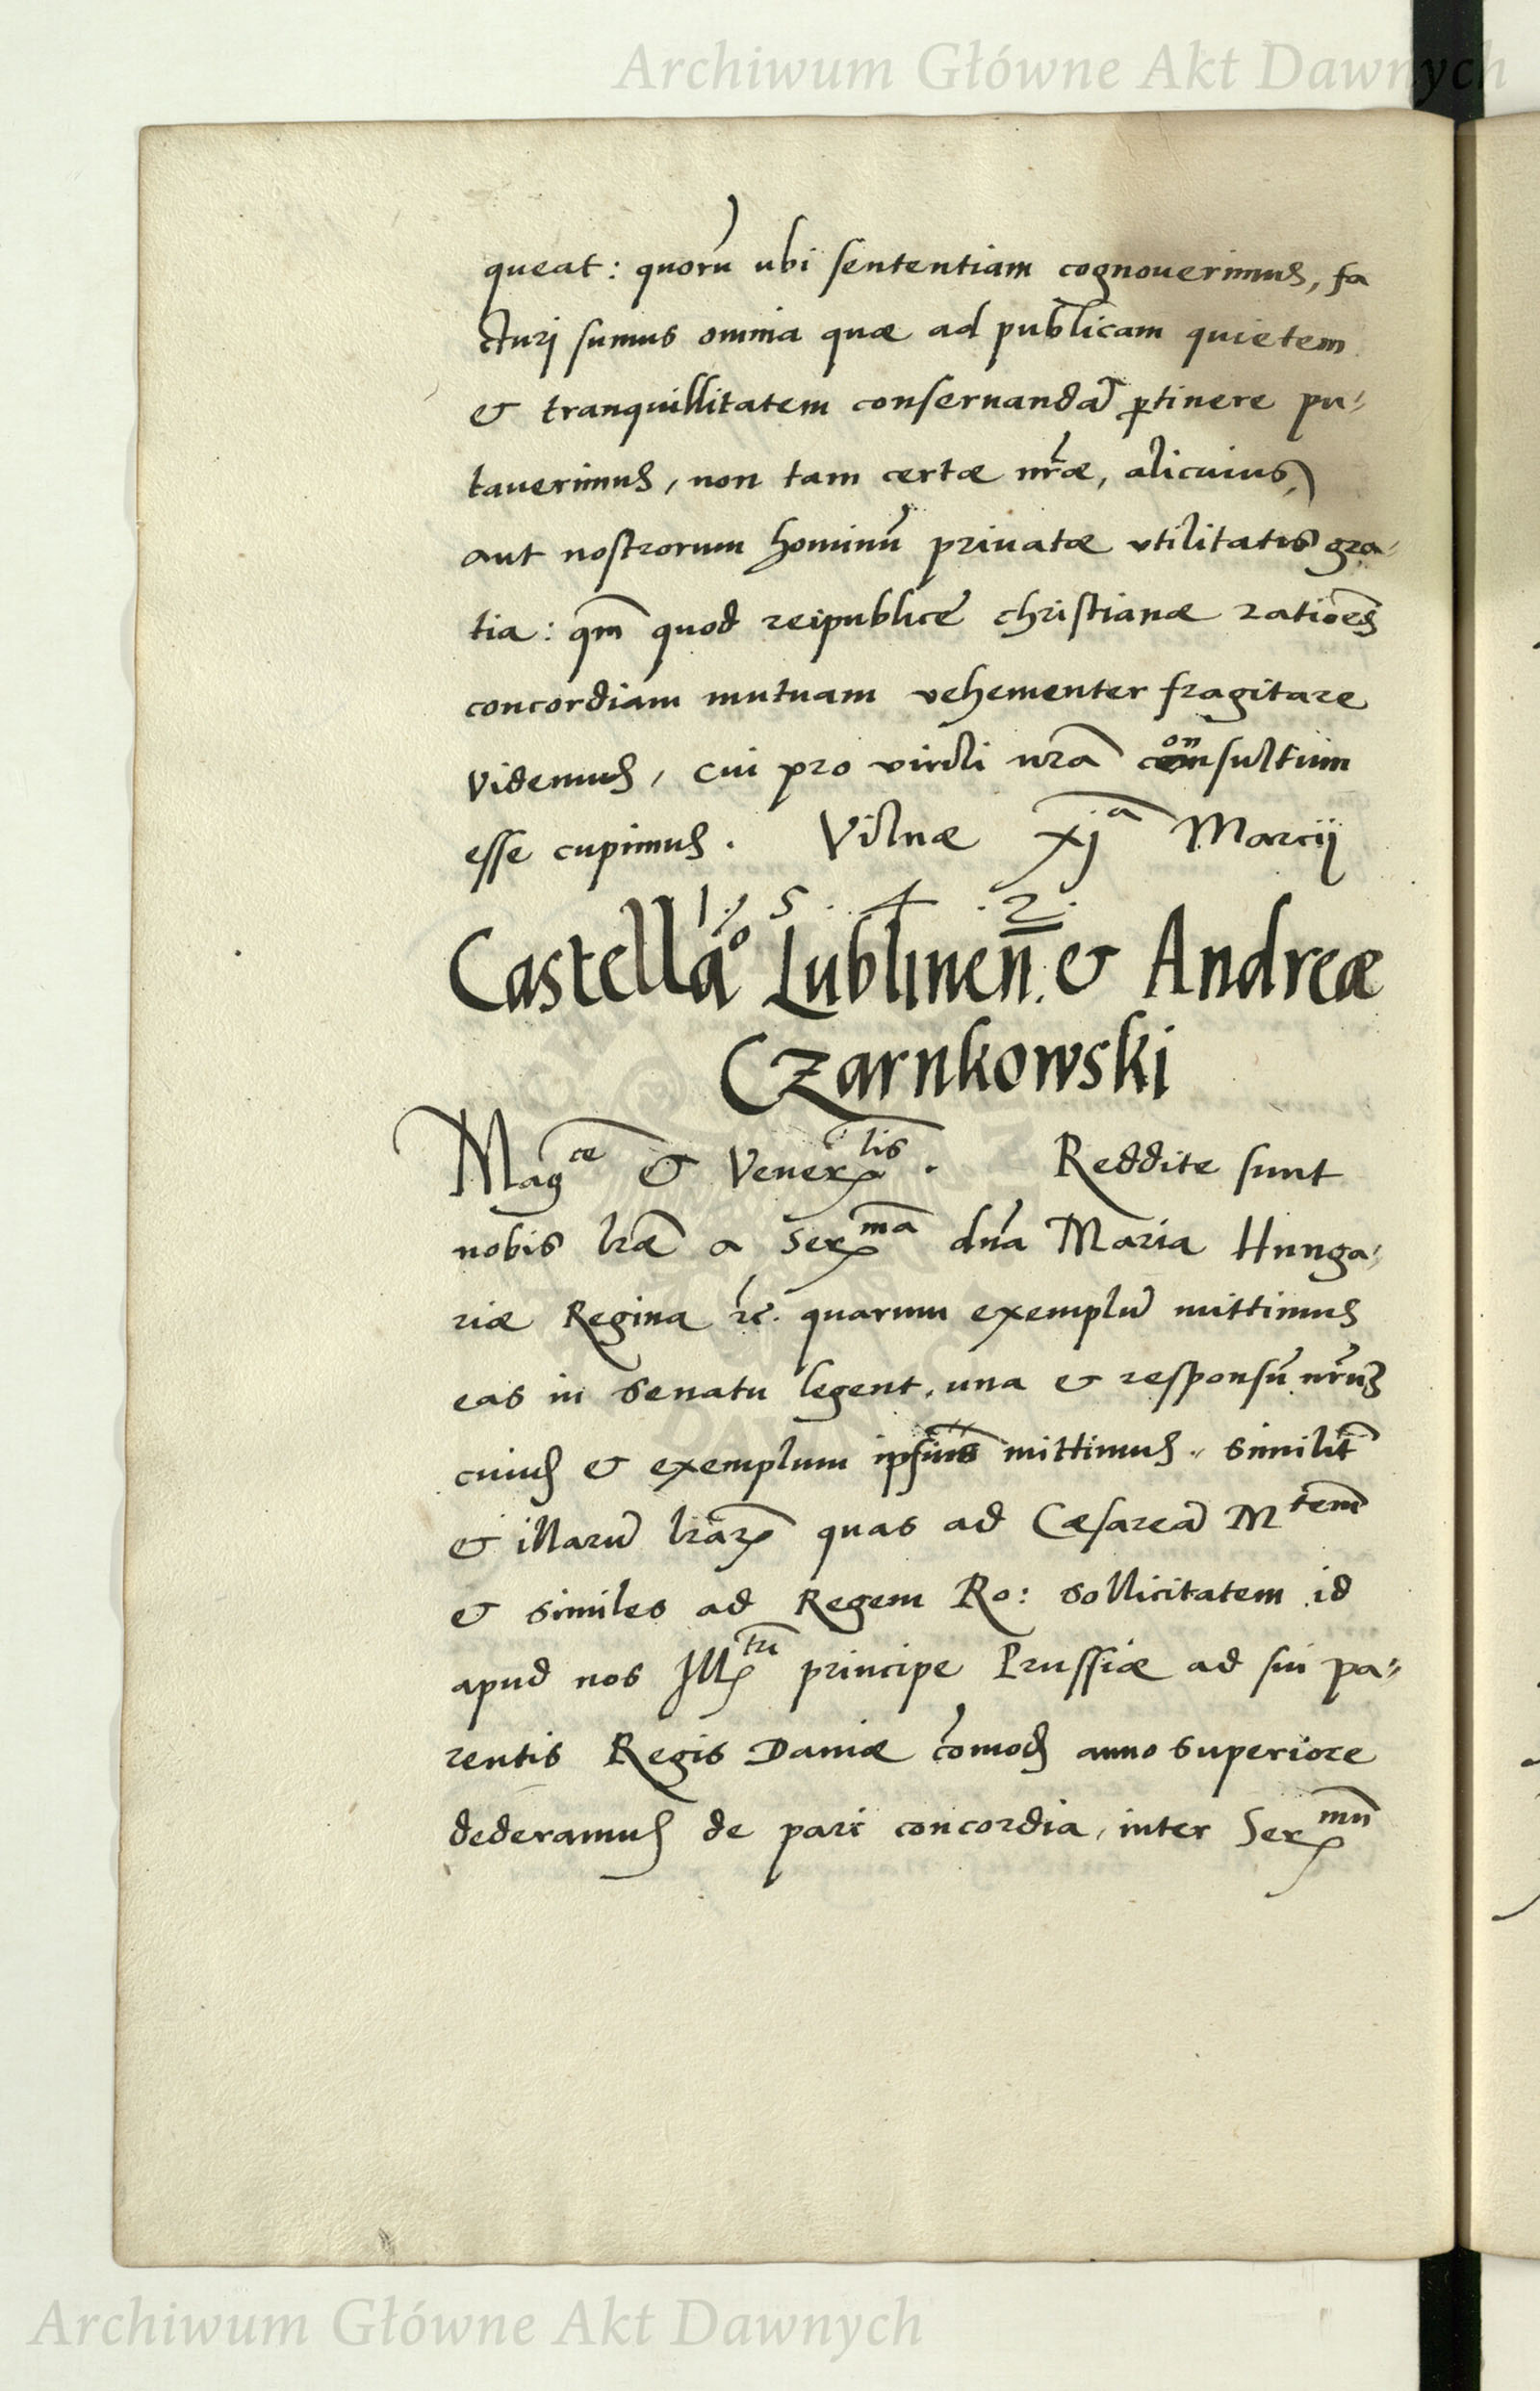 Archiwum Główne Akt Dawnych
queat: quorū ubi sententiam cognouerimus, fa
cturi sumus omnia quæ ad publicam quietem
& tranquillitatem conseruandā ꝑtinere pu-
tauerimus, non tam certæ nr̄æ, alicuius,
aut nostrorum hominū priuatæ vtilitatis gra-
tia: qm̄ quod reipublicę christianæ ratiōes
concordiam mutuam vehementer fragitare
videmus, cui pro virili nrā consultum
esse cupimus. Vilnæ xjᵃ Marcij
1.5.4.2.
Castellāᵒ Lublinen̄. & Andreæ
Czarnkowski
Magᶜᵉ & Venerˡⁱˢ. Reddite sunt
nobis lrǣ a Serᵐᵃ dnā Maria Hunga-
riæ Regina ꝛc. quarum exemplū mittimus
eas in senatu legent, una & responsū nr̄um
cuius & exemplum ipsius mittimus. similit̄
& illarū lrāꝝ quas ad Cæsareā Mᵗᵉᵐ
& similes ad Regem Ro: sollicitatem id
apud nos Illᵗʳⁱ principe Prussiæ ad sui pa-
rentis Regis Daniæ cōmodū anno superiore
dederamus de pari concordia, inter Serᵐū
Archiwum Główne Akt Dawnych